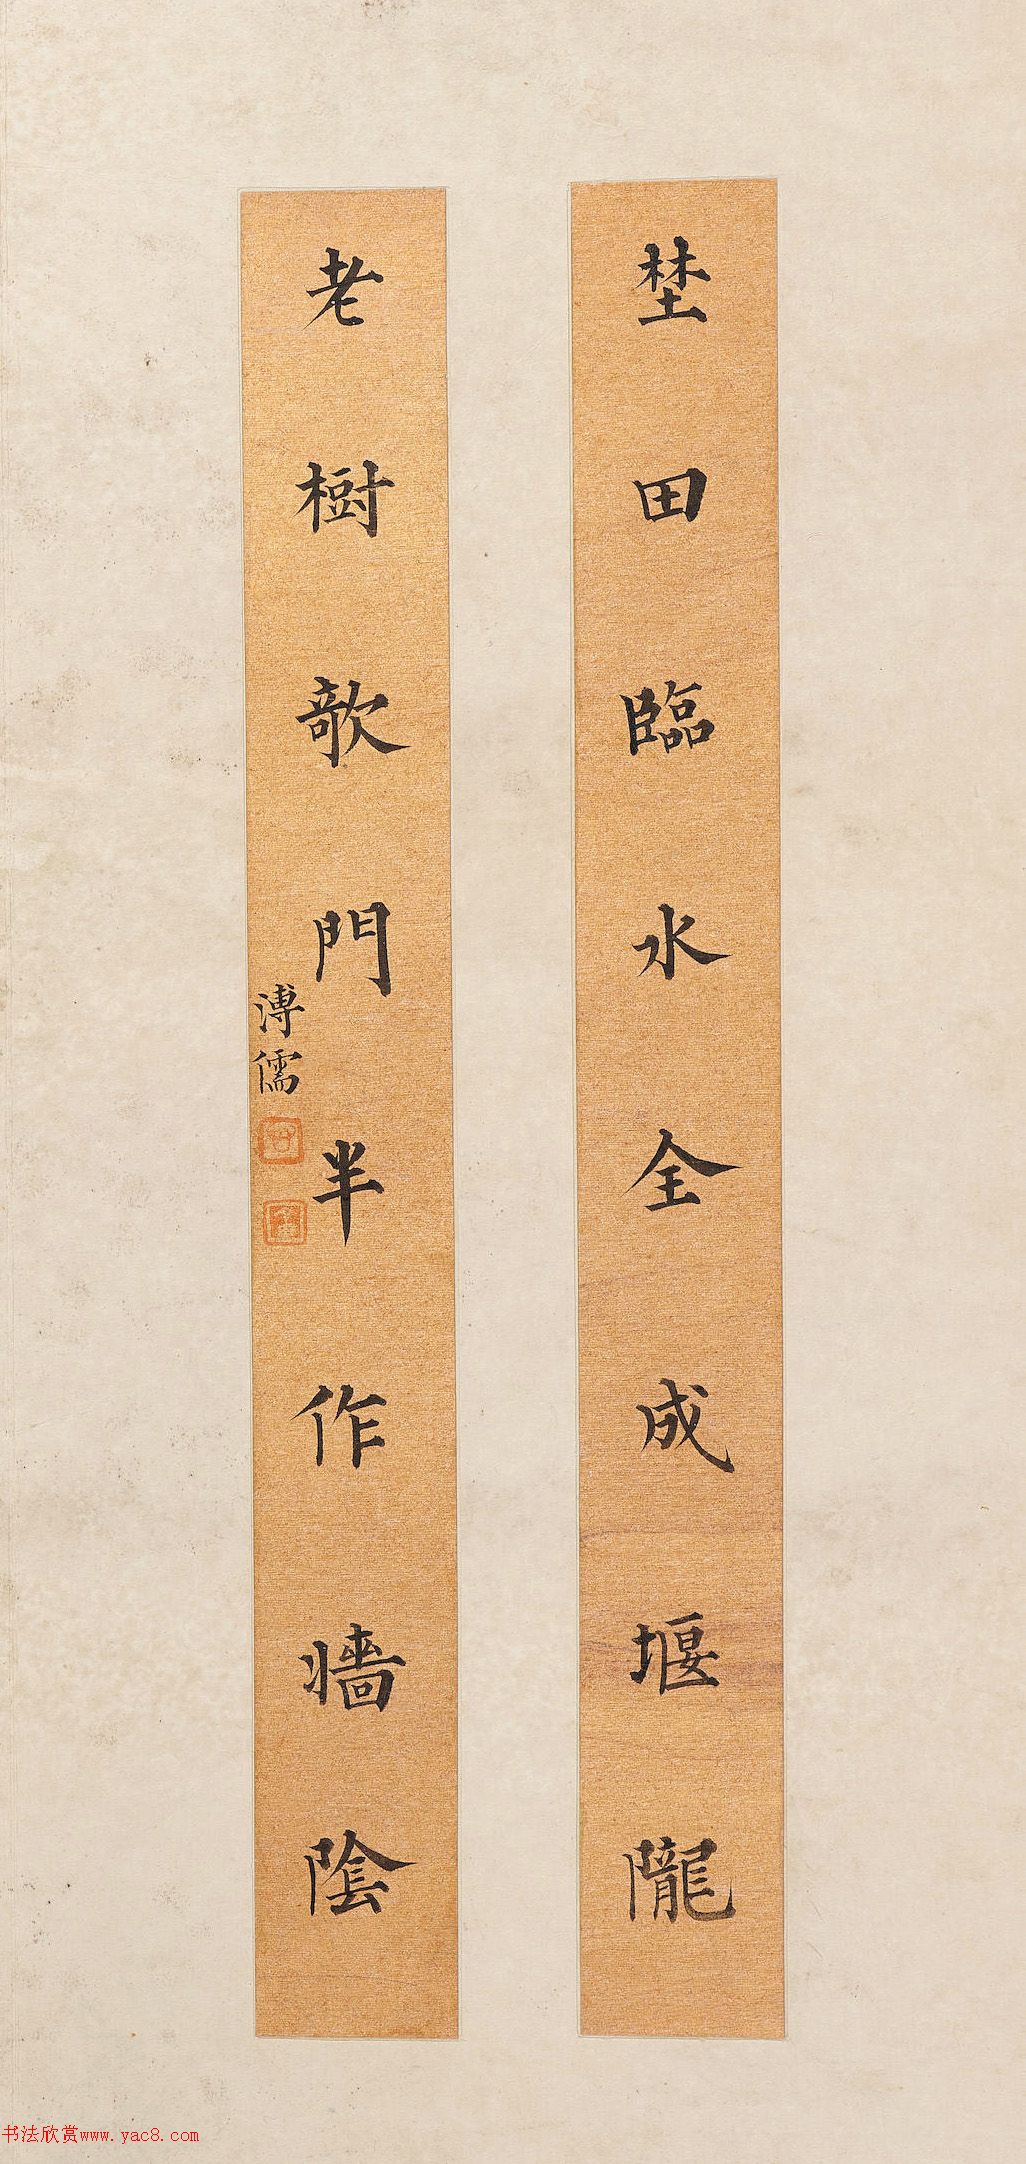 埜田臨水全成堰隴
老樹欹門半作牆陰
溥儒
书法欣赏www.yac8.com